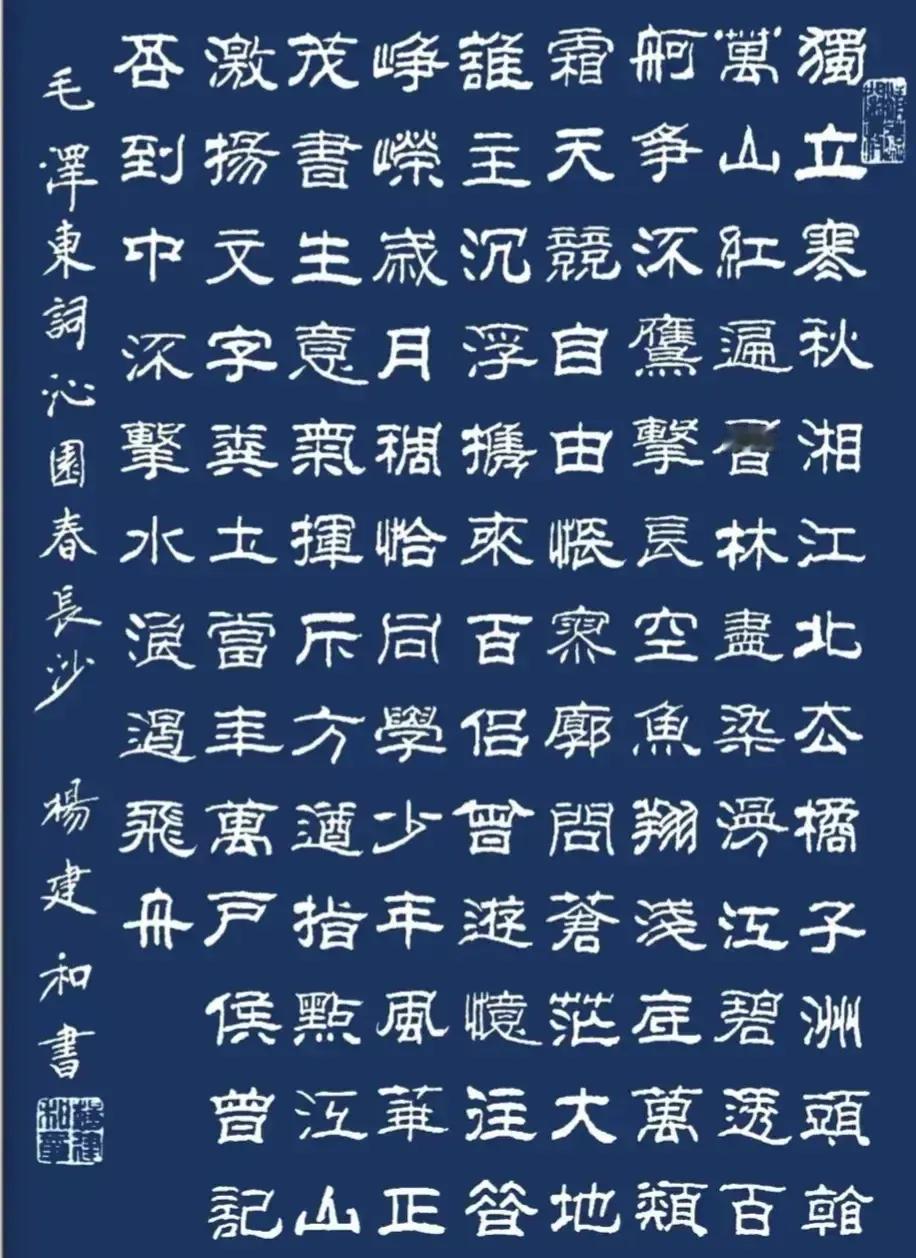 獨立寒秋湘江北去橘子洲頭看
萬山紅遍層林盡染漫江碧透百
舸爭流鷹擊長空魚翔淺底萬類
霜天競自由悵寥廓問蒼茫大地
誰主沉浮攜來百侶曾遊憶往昔
崢嶸歲月稠恰同學少年風華正
茂書生意氣揮斥方遒指點江山
激揚文字糞土當年萬戶侯曾記
否到中流擊水浪遏飛舟
毛澤東詞沁園春長沙 楊建和書